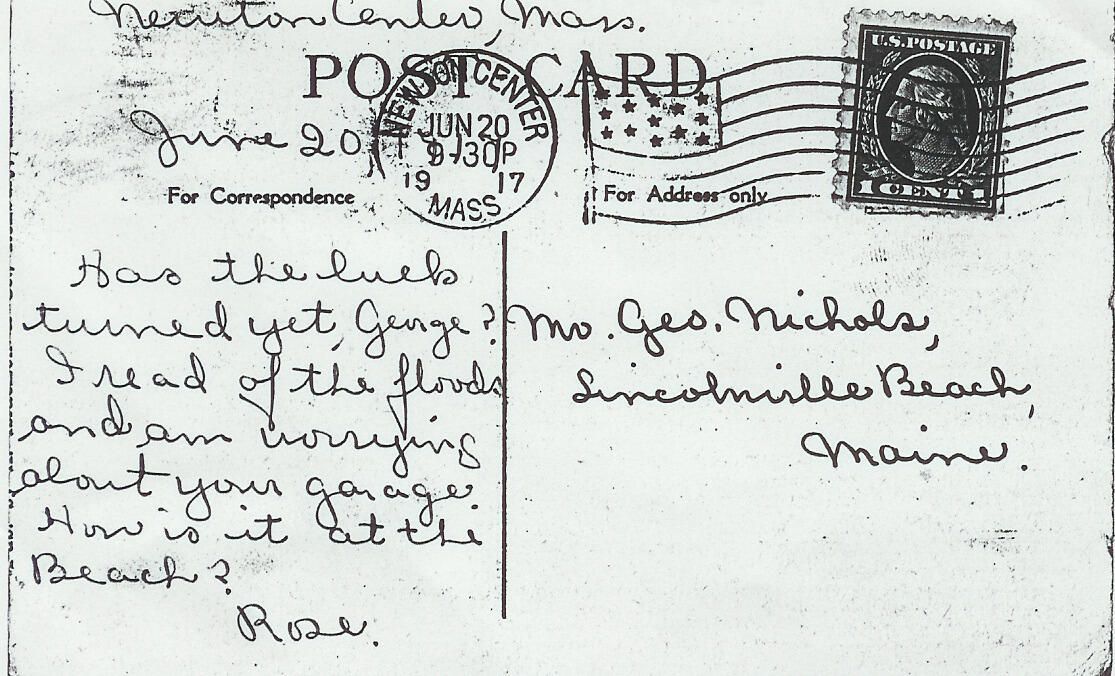 Newton Center, Mass.
POST CARD
June 20
NEWTON CENTER
JUN 20
9-30P
19 17
MASS
U.S. POSTAGE
1 CENT 1
For Correspondence
For Address only
Has the luck
turned yet, George?
I read of the floods
and am worrying
about your garage
How is it at the
Beach?
Rose.
Mr. Geo. Nichols,
Lincolnville Beach,
Maine.